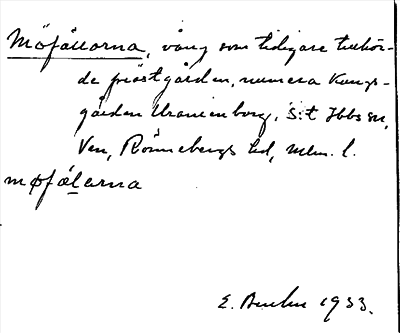 Möfällorna, vång som tidigare tillhör-
de prästgården, numera Kungs-
gården Uranienborg, S:t Ibbs sn,
Ven, Rönnebergs hd, Mlm. l.
møfälarna
E. 1933.